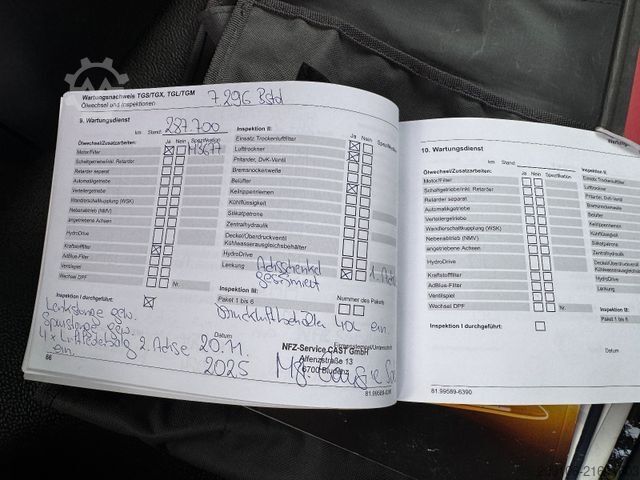 Wartungsnachweis TGS/TGX, TGL/TGM
Ölwechsel und Inspektionen
7.296 Bstd
9. Wartungsdienst
km Stand: 287.700
Ölwechsel/Zusatzarbeiten: Ja Nein Spezifikation
Motor/Filter M3677
Schaltgetriebe/inkl. Retarder
Retarder separat
Automatikgetriebe
Verteilergetriebe
Wandlerschaltkupplung (WSK)
Nebenabtrieb (NMV)
angetriebene Achsen
HydroDrive
Kraftstofffilter
AdBlue-Filter
Ventilspiel
Wechsel DPF Nr.
Inspektion I durchgeführt:
Inspektion II: Ja Nein Spezifikation
Einsatz Trockenluftfilter
Lufttrockner
Pritarder, DvK-Ventil
Bremsnockenwelle
Belüfter
Keilrippenriemen
Kühlflüssigkeit
Silikatpatrone
Zentralhydraulik
Deckel/Überdruckventil
Kühlwasserausgleichsbehälter
HydroDrive
Lenkung Achsschenkel 1. Achse
geschmiert
Inspektion III: Nummer des Pakets
Paket 1 bis 6
Druckluftbehälter 40L ein.
Lenkstange gew.
Spurstange gew.
4 x Luftfederbalg 2. Achse
ein.
Datum
20.11.
2025
Firmenstempel/Unterschrift
NFZ-Service CAST GmbH
Alfenzstraße 13
6700 Bludenz
86
81.99589-6390
10. Wartungsdienst
km Stand:
Ölwechsel/Zusatzarbeiten: Ja Nein Spezifikation
Motor/Filter
Schaltgetriebe/inkl. Retarder
Retarder separat
Automatikgetriebe
Verteilergetriebe
Wandlerschaltkupplung (WSK)
Nebenabtrieb (NMV)
angetriebene Achsen
HydroDrive
Kraftstofffilter
AdBlue-Filter
Ventilspiel
Wechsel DPF Nr.
Inspektion I durchgeführt:
Datum
Inspektion II:
Einsatz Trockenluftfilter
Lufttrockner
Pritarder, DvK-Ventil
Bremsnockenwelle
Belüfter
Keilrippenriemen
Kühlflüssigkeit
Silikatpatrone
Zentralhydraulik
HydroDrive
Lenkung
Inspektion III:
Paket 1 bis 6
81.99589-6390